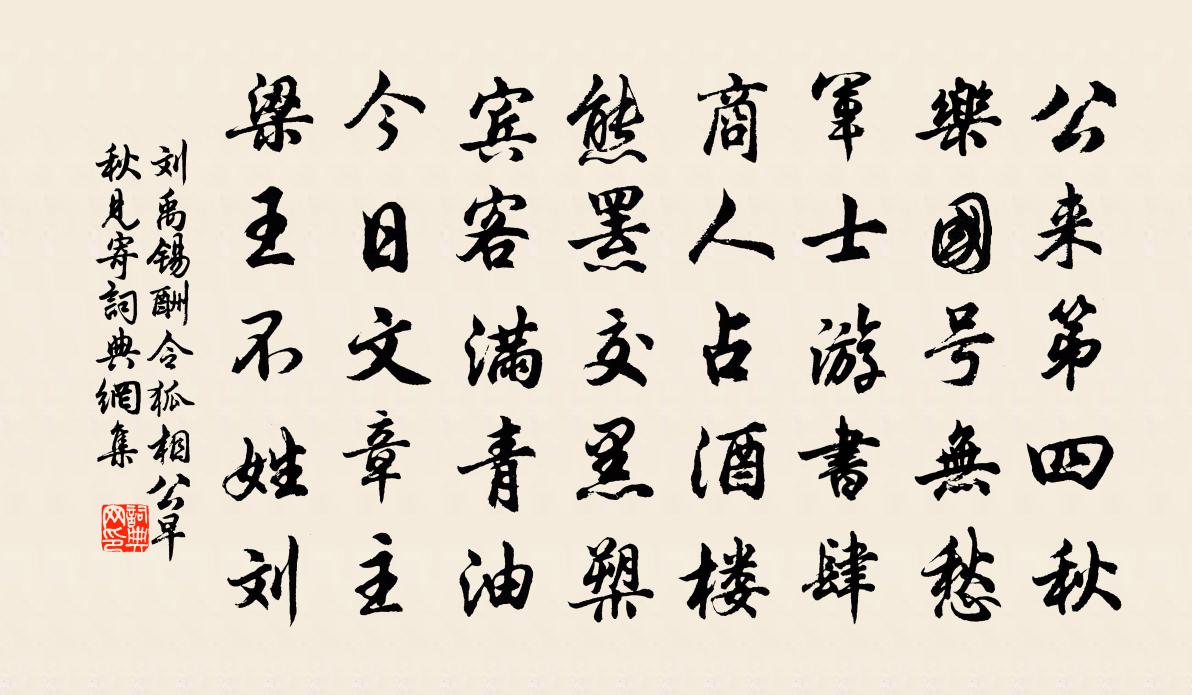 公来第四秋
樂國号無愁
軍士游書肆
商人占酒楼
熊羆交黑槊
宾客满青油
今日文章主
梁王不姓刘
刘禹锡酬令狐相公早
秋見寄詞典網集
詞典网印